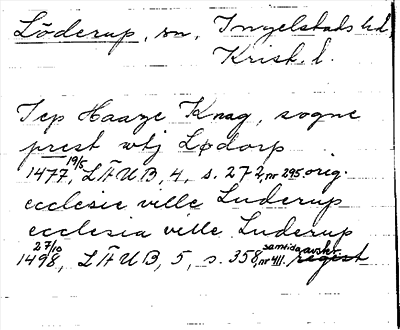 Löderup, sn, Ingelstads hd,
Krist. l.
Jep Haaze Knag, sogne
prest wtj Lødorp
1477 19/5, LÄUB, 4, s. 272, nr 295 orig.
ecclesie ville Luderup
ecclesia ville Luderup
1498 27/10, LÄUB, 5, s. 358, nr 411. samtida avskr. regest